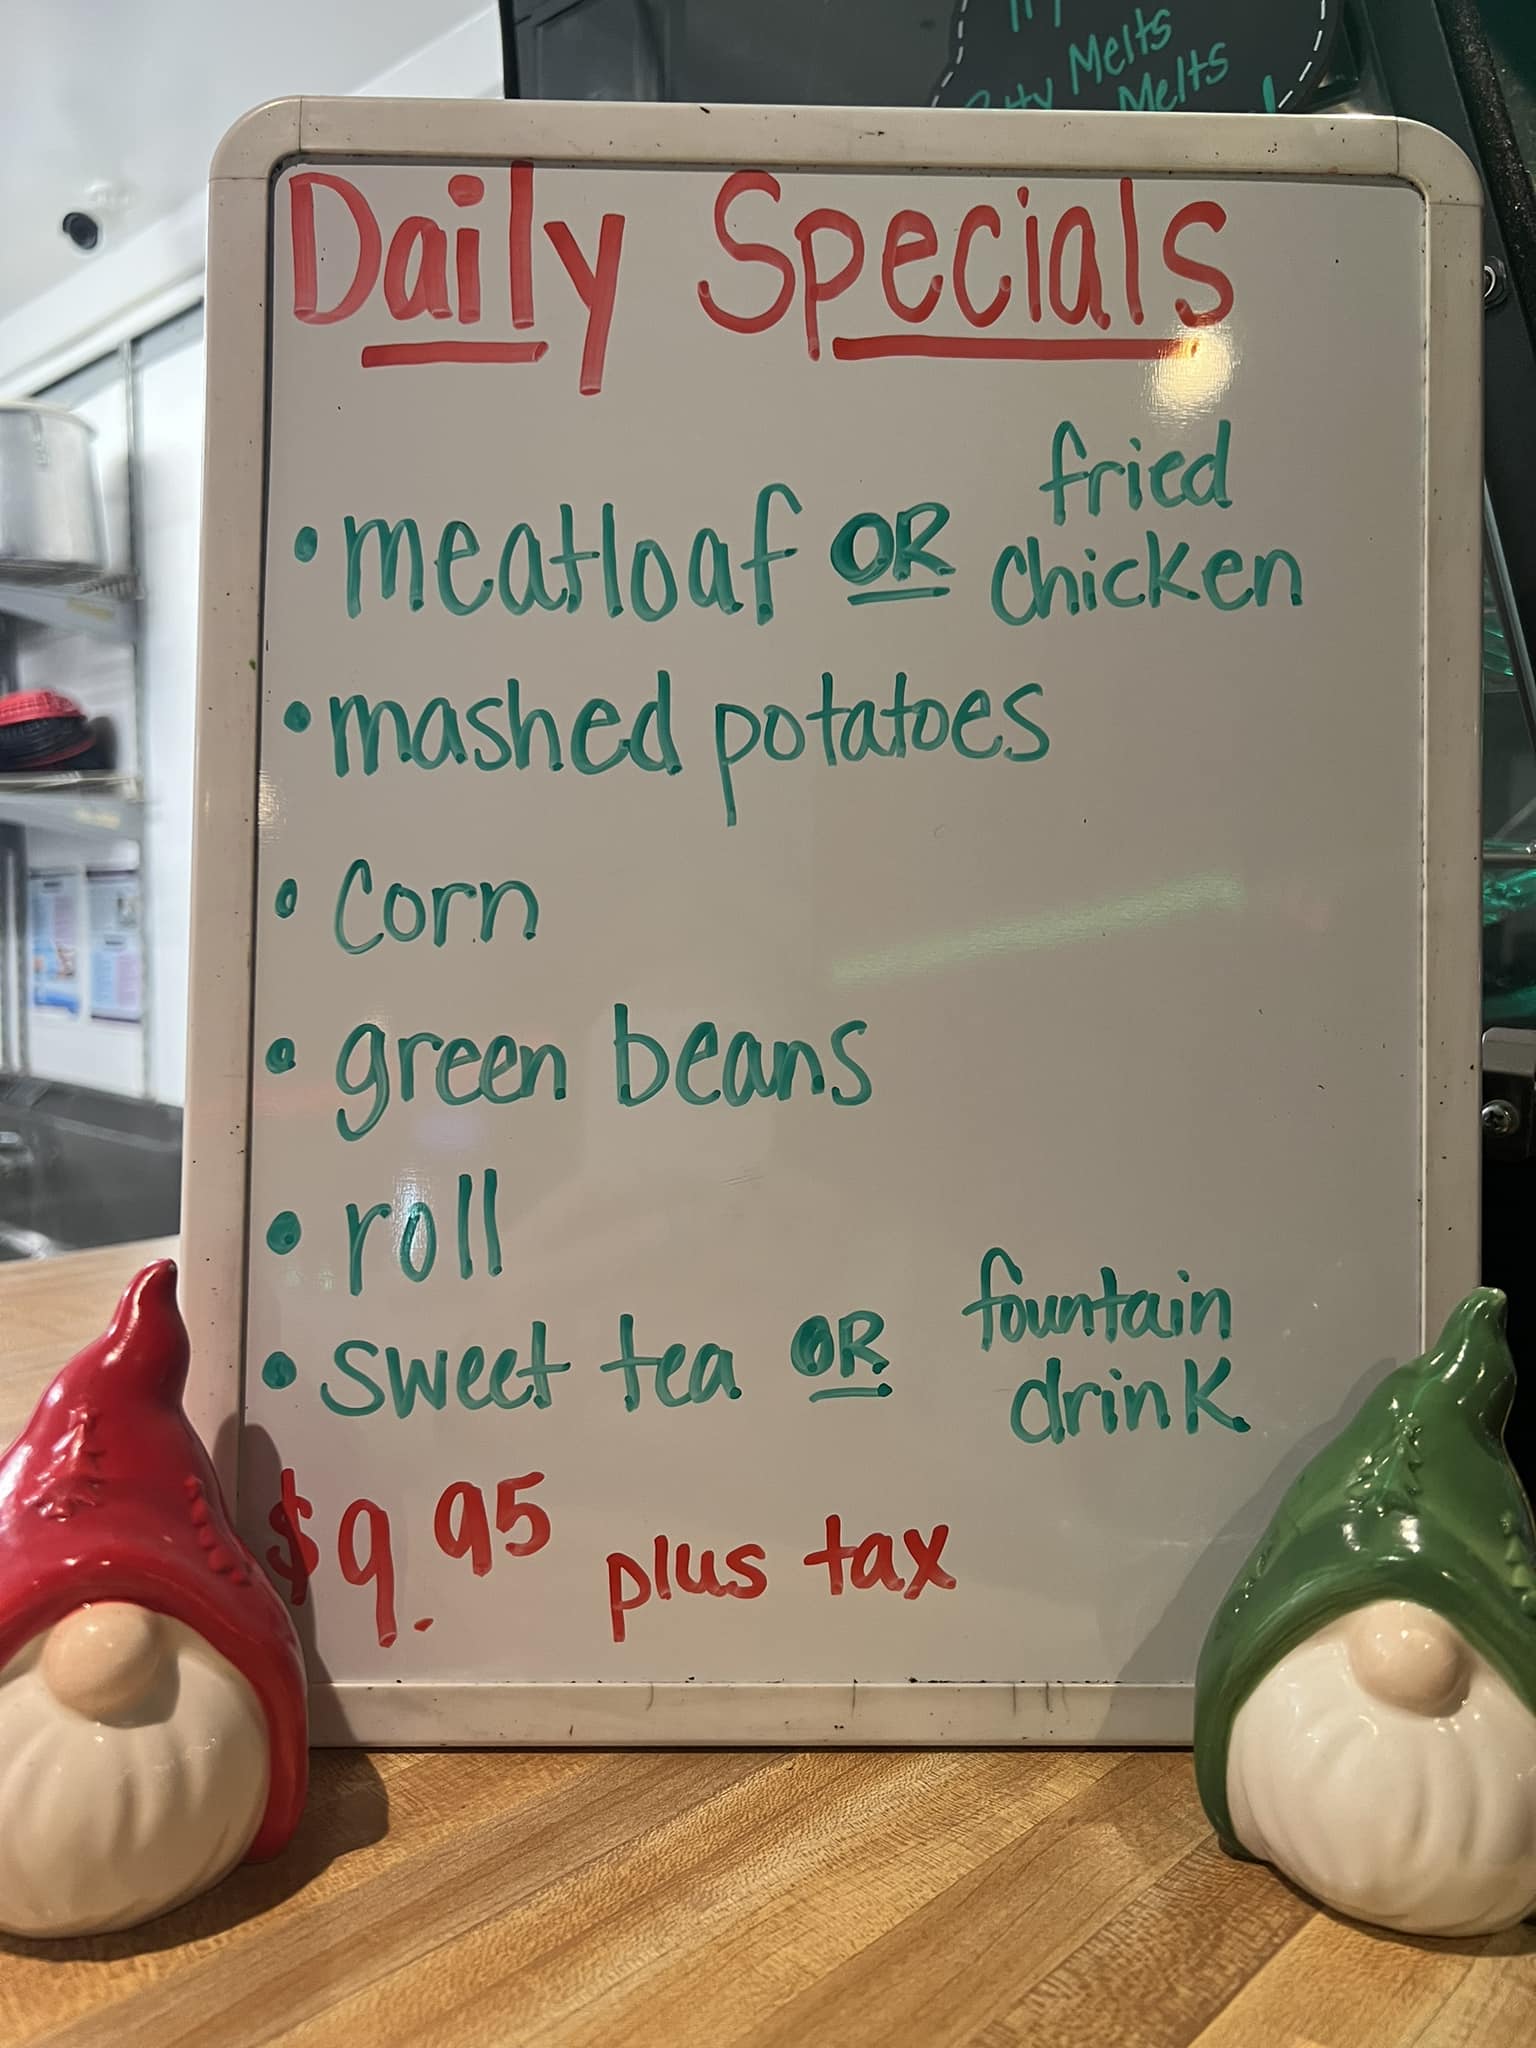 Melts
Melts
Daily Specials
• meatloaf OR fried chicken
• mashed potatoes
• Corn
• green beans
• roll
• sweet tea OR fountain drink
$9.95 plus tax